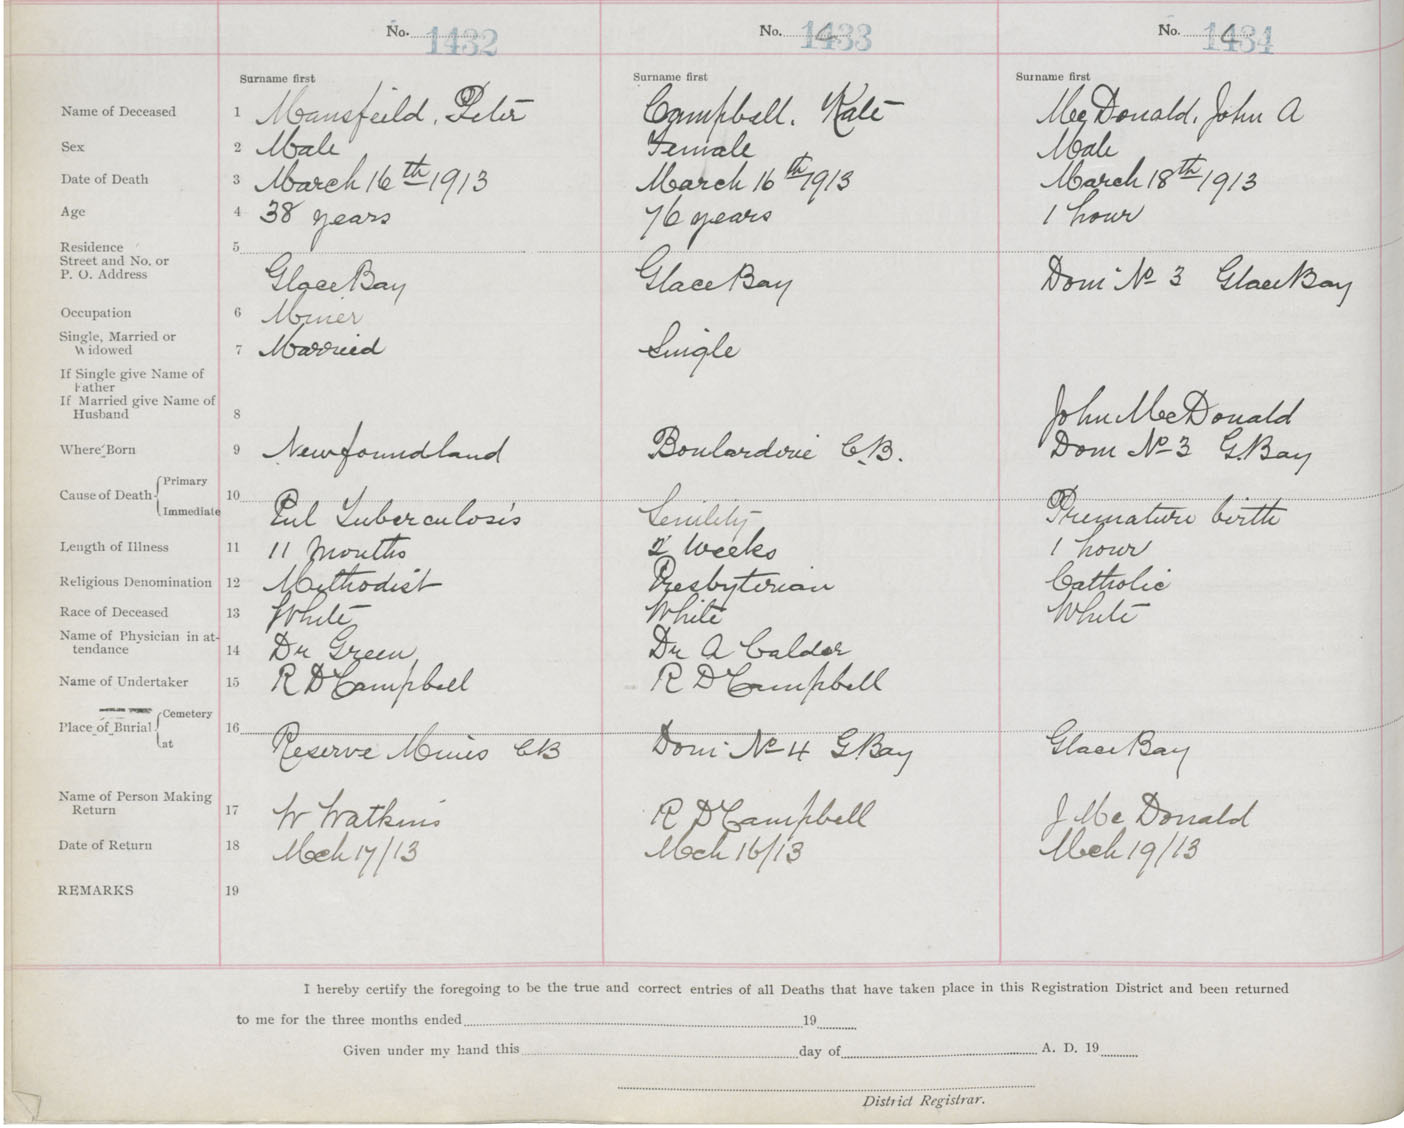 No. 1432 No. 1433 No. 1434
Surname first Surname first Surname first
Name of Deceased 1 Mansfeild, Peter Campbell, Kate McDonald, John A
Sex 2 Male Female Male
Date of Death 3 March 16th 1913 March 16th 1913 March 18th 1913
Age 4 38 years 76 years 1 hour
Residence 5
Street and No. or
P. O. Address Glace Bay Glace Bay Dom No 3 Glace Bay
Occupation 6 Miner
Single, Married or
Widowed 7 Married Single
If Single give Name of
Father
If Married give Name of
Husband 8 John McDonald
Where Born 9 Newfoundland Boularderie C.B. Dom No 3 G.Bay
Cause of Death Primary 10
Immediate Pul Tuberculosis Senility Premature birth
Length of Illness 11 11 months 2 weeks 1 hour
Religious Denomination 12 Methodist Presbyterian Catholic
Race of Deceased 13 White White White
Name of Physician in at-
tendance 14 Dr Green Dr A Calder
Name of Undertaker 15 R D Campbell R D Campbell
Place of Burial Cemetery 16
at Reserve Mines CB Dom No 4 G.Bay Glace Bay
Name of Person Making
Return 17 W Watkins R D Campbell J McDonald
Date of Return 18 Mch 17/13 Mch 16/13 Mch 19/13
REMARKS 19
I hereby certify the foregoing to be the true and correct entries of all Deaths that have taken place in this Registration District and been returned
to me for the three months ended 19
Given under my hand this day of A. D. 19
District Registrar.